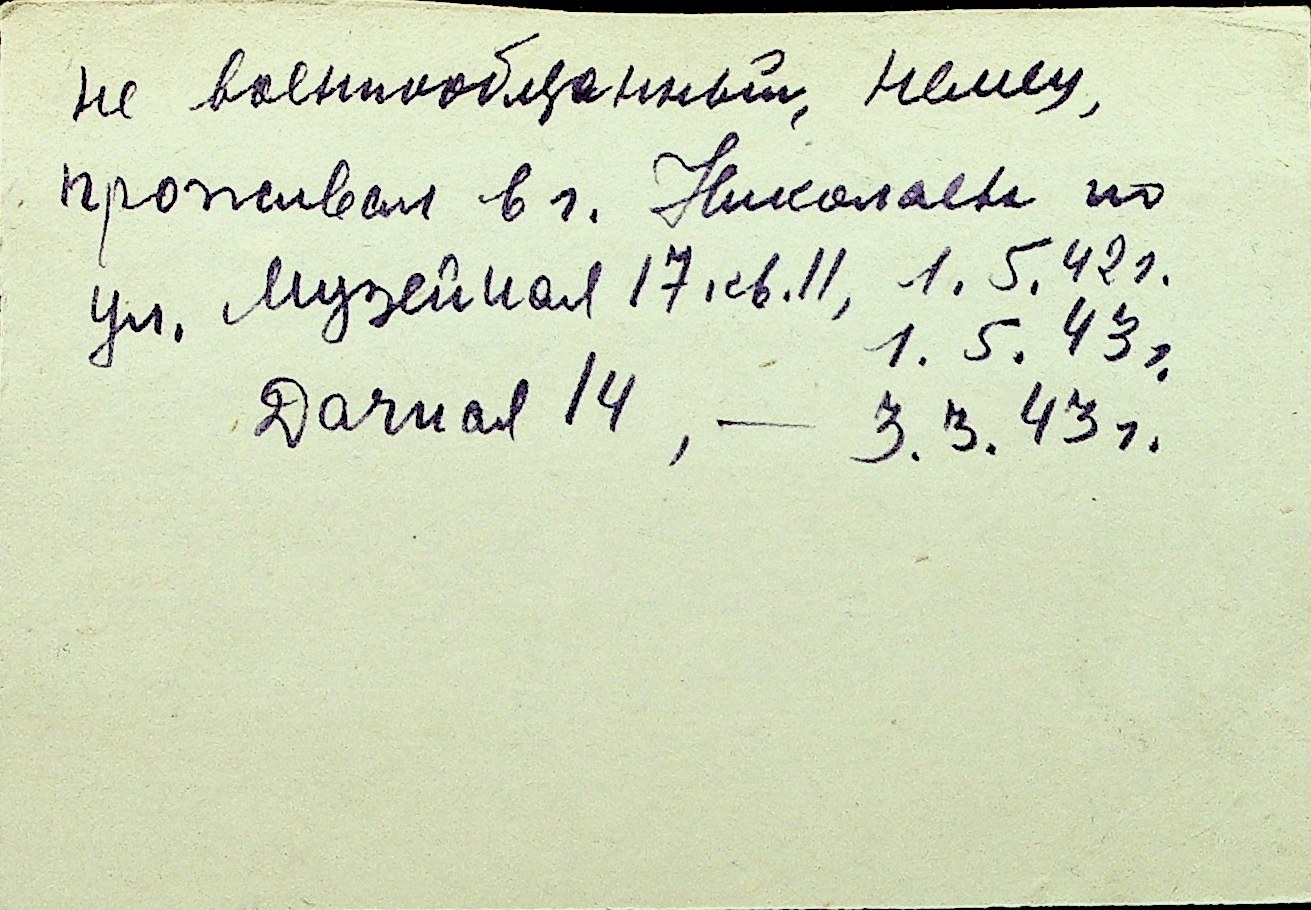 не военнообязанный, немец,
проживал в г. Николаеве по
ул. Музейная 17 кв. 11, 1. 5. 42 г.
1. 5. 43 г.
Дачная 14, — 3. 3. 43 г.